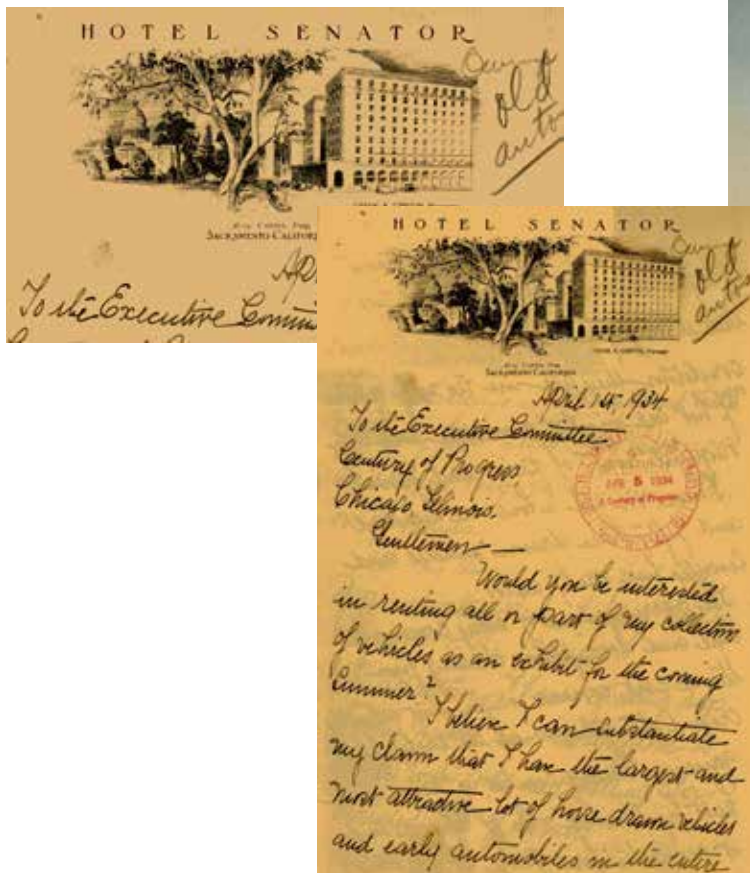 HOTEL SENATOR
old
auto
SACRAMENTO-CALIFOR
Apr
To the Executive Commi
HOTEL SENATOR
old
auto
SACRAMENTO-CALIFORNIA
April 1st, 1934
To the Executive Committee
Century of Progress
Chicago, Illinois.
APR 5 1934
A Century of Progress
Gentlemen —
Would you be interested
in renting all or part of my collection
of vehicles as an exhibit for the coming
summer?
I believe I can substantiate
my claim that I have the largest and
most attractive lot of horse drawn vehicles
and early automobiles in the entire